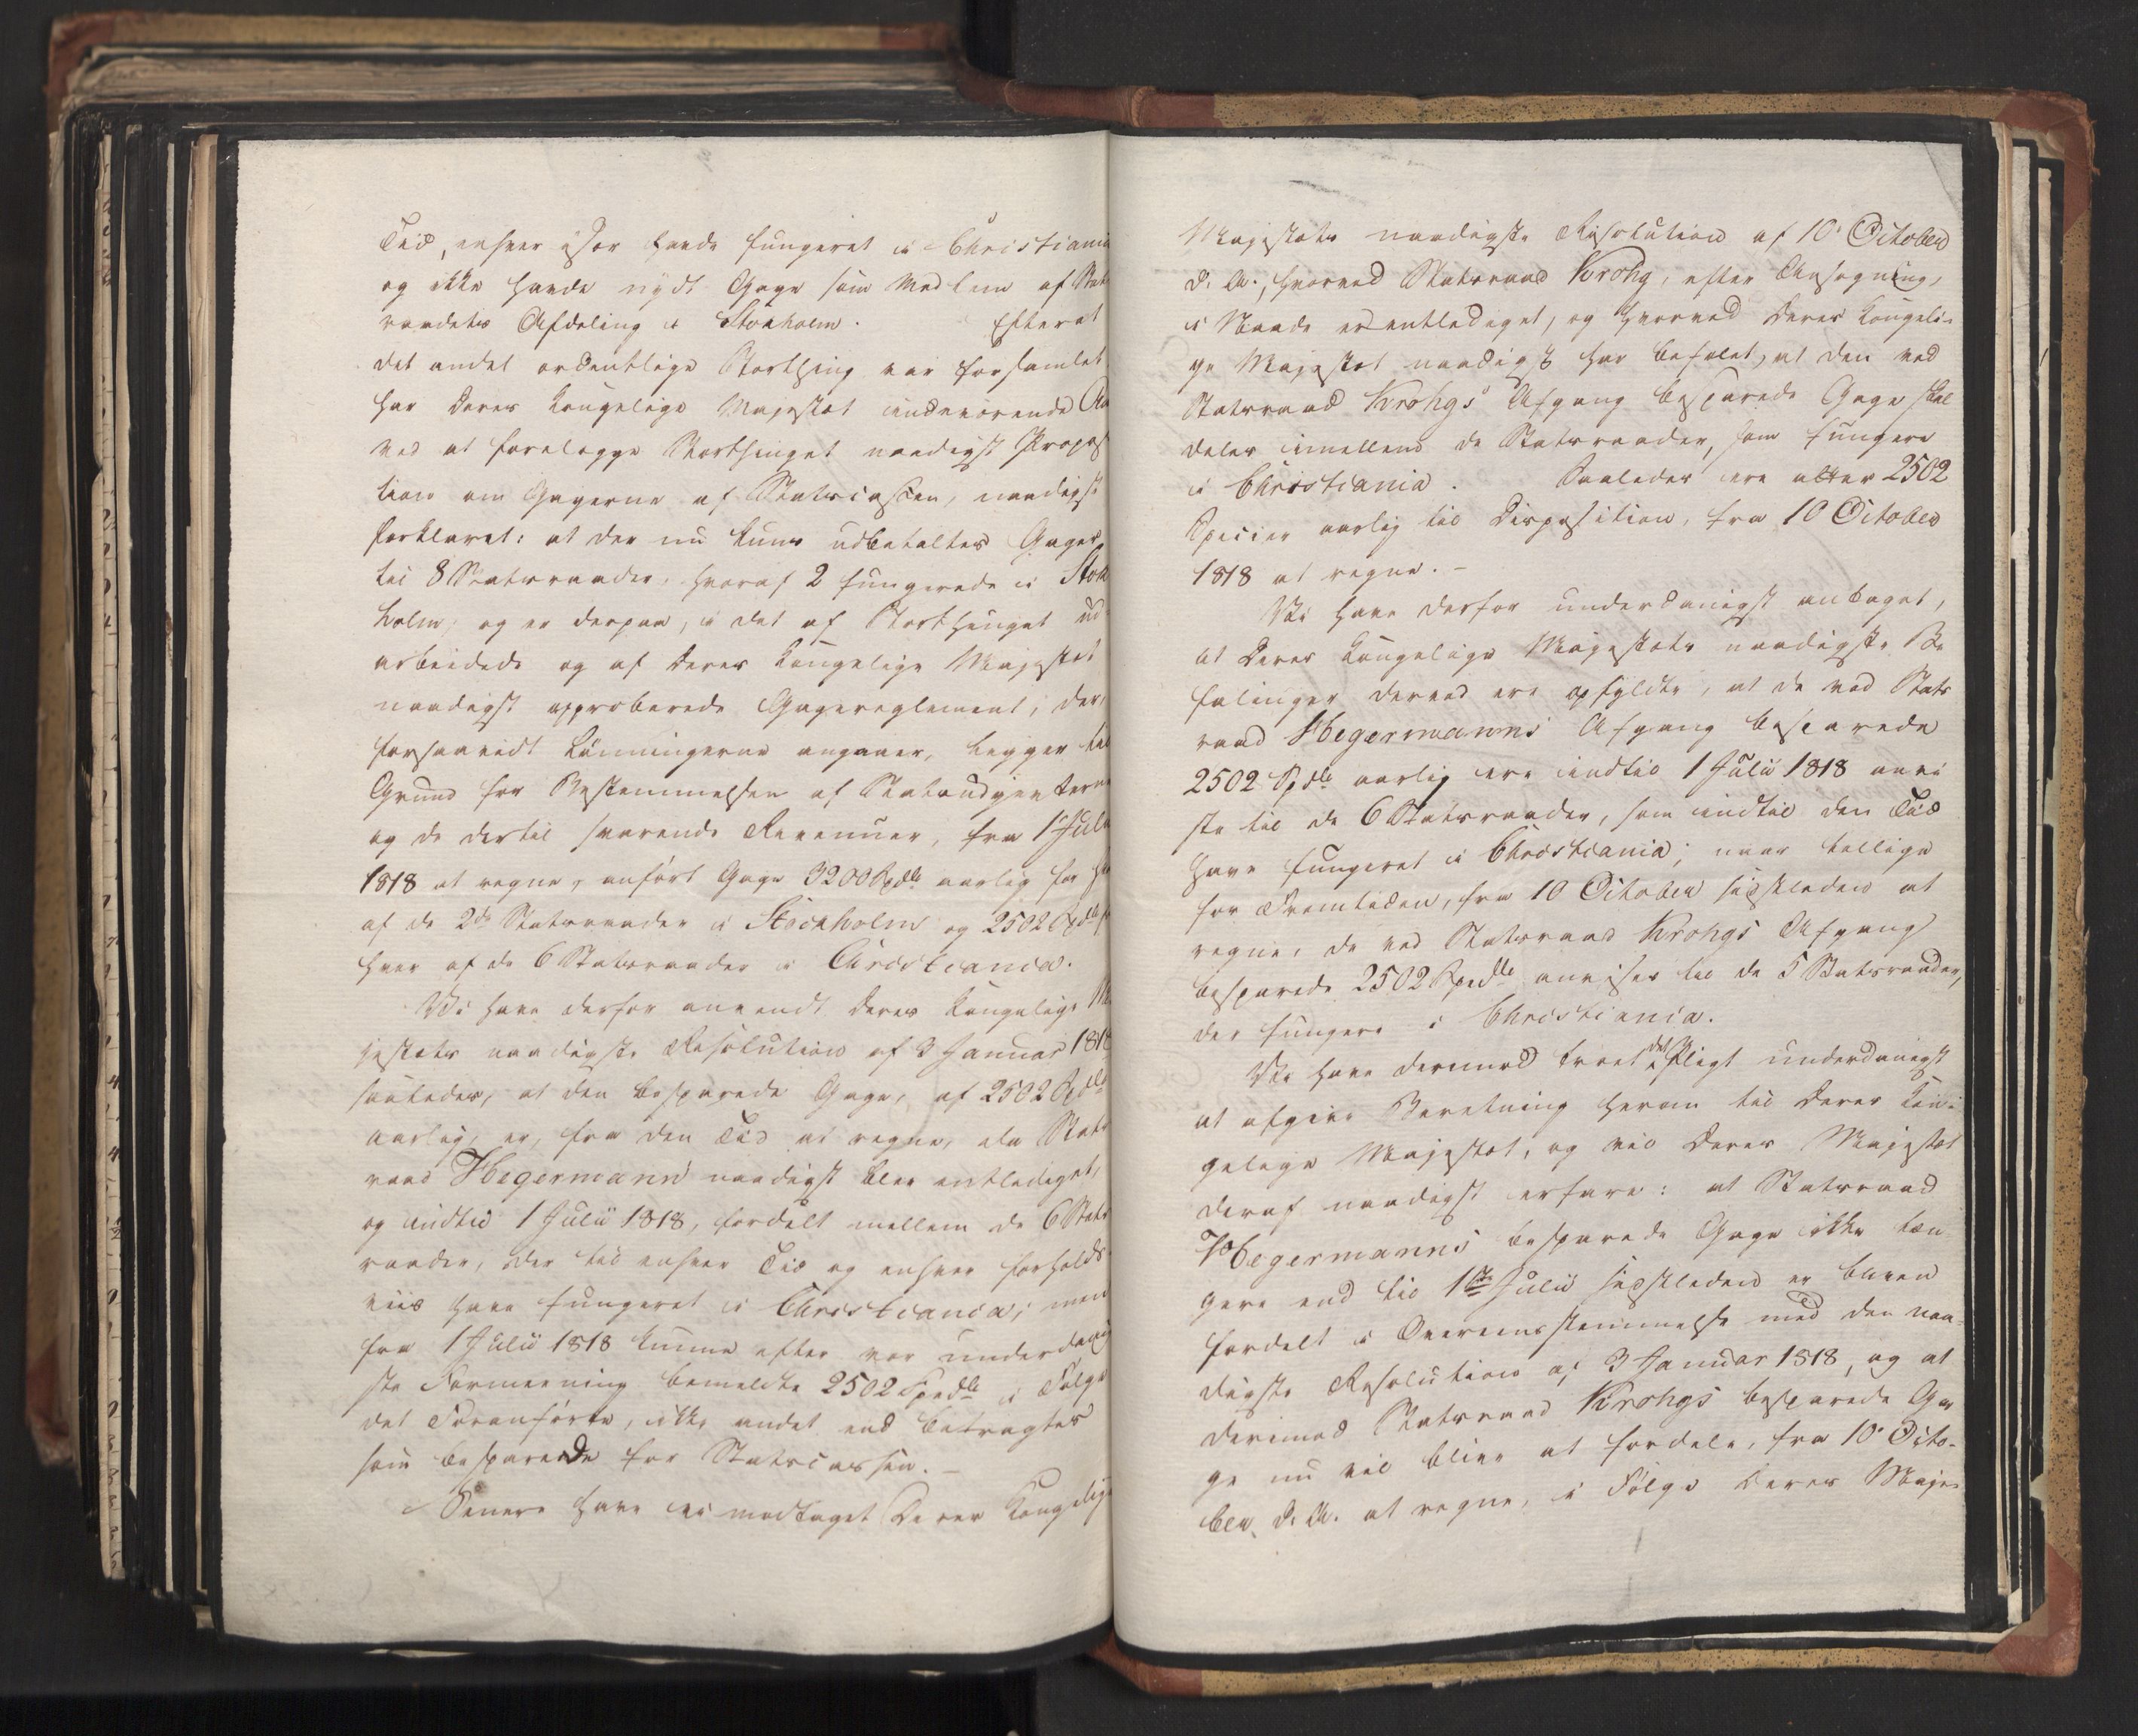 Tid, enhver især havde fungeret i Christiania
og ikke havde nydt Gage som Medlem af Stats
raadets Afdeling i Stokholm. Efterat
det andet ordentlige Storthing var forsamlet
har Deres Kongelige Majestæt indeværende Aar
ved at forelægge Storthinget naadigst Proposi
tion om Gagerne af Statscassen, naadigst
forklaret: at der nu kuns udbetaltes Gager
til 8 Statsraader, hvoraf 2 fungerede i Stok
holm; og er derpaa, i det af Storthinget ud-
arbeidede og af Deres Kongelige Majestæt
naadigst approberede Gagereglement, der,
forsaavidt Lønningerne angaaer, ligger til
Grund for Bestemmelsen af Statsudgivterne
og de dertil svarende Revenuer, fra 1 Julii
1818 at regne, anført Gage 3200 Spdlr aarlig for hver
af de 2de Statsraader i Stockholm og 2502 Spdlr for
hver af de 6 Statsraader i Christiania.
Vi have derfor anvendt Deres Kongelige Ma
jestæts naadigste Resolution af 3 Januar 1818
saaledes, at den besparede Gage, af 2502 Spdlr
aarlig, er, fra den Tid at regne, da Stats
raad Hegermann naadigst blev entlediget,
og indtil 1 Julii 1818, fordelt mellem de 6 Stats
raader, der til enhver Tid og enhver forholds
viis have fungeret i Christiania; men
fra 1 Julii 1818 kunne efter vor underdanig
ste Formeening bemeldte 2502 Spedlr i Følge
det Foranførte, ikke andet end betragtes
som besparede for Statscassen. –
Senere have vi modtaget Deres Kongelige
Majestæts naadigste Resolution af 10' October
d. A., hvorved Statsraad Krohg, efter Ansøgning,
i Naade er entlediget, og hvorved Deres Kongeli-
ge Majestæt naadigst har befalet, at den ved
Statsraad Krohgs Afgang besparede Gage skal
deles imellem de Statsraader, som fungere
i Christiania. Saaledes ere atter 2502
Specier aarlig til Disposition, fra 10 October
1818 at regne. –
Vi have derfor underdanigst antaget,
at Deres Kongelige Majestæts naadigste Be
falinger derved ere opfyldte, at de ved Stats
raad Hegermanns Afgang besparede
2502 Spdlr aarlig ere indtil 1 Julii 1818 anvi
ste til de 6 Statsraader, som indtil den Tid
have fungeret i Christiania; naar tillige
for Fremtiden, fra 10 October sidstleden at
regne, de ved Statsraad Krohgs Afgang
besparede 2502 Spedlr anvises til de 5 Statsraader,
der fungere i Christiania.
Vi have derimod troet det Pligt underdanigst
at afgive Beretning herom til Deres Kon-
gelige Majestæt, og vil Deres Majestæt
deraf naadigst erfare: at Statsraad
Hegermanns besparede Gage ikke læn
gere end til 1ste Julii sidstleden er bleven
fordelt i Overeensstemmelse med den naa-
digste Resolution af 3 Januar 1818, og at
derimod Statsraad Krohgs besparede Ga
ge nu vil blive at fordele, fra 10' Octo-
ber d. A. at regne, i Følge Deres Maje-